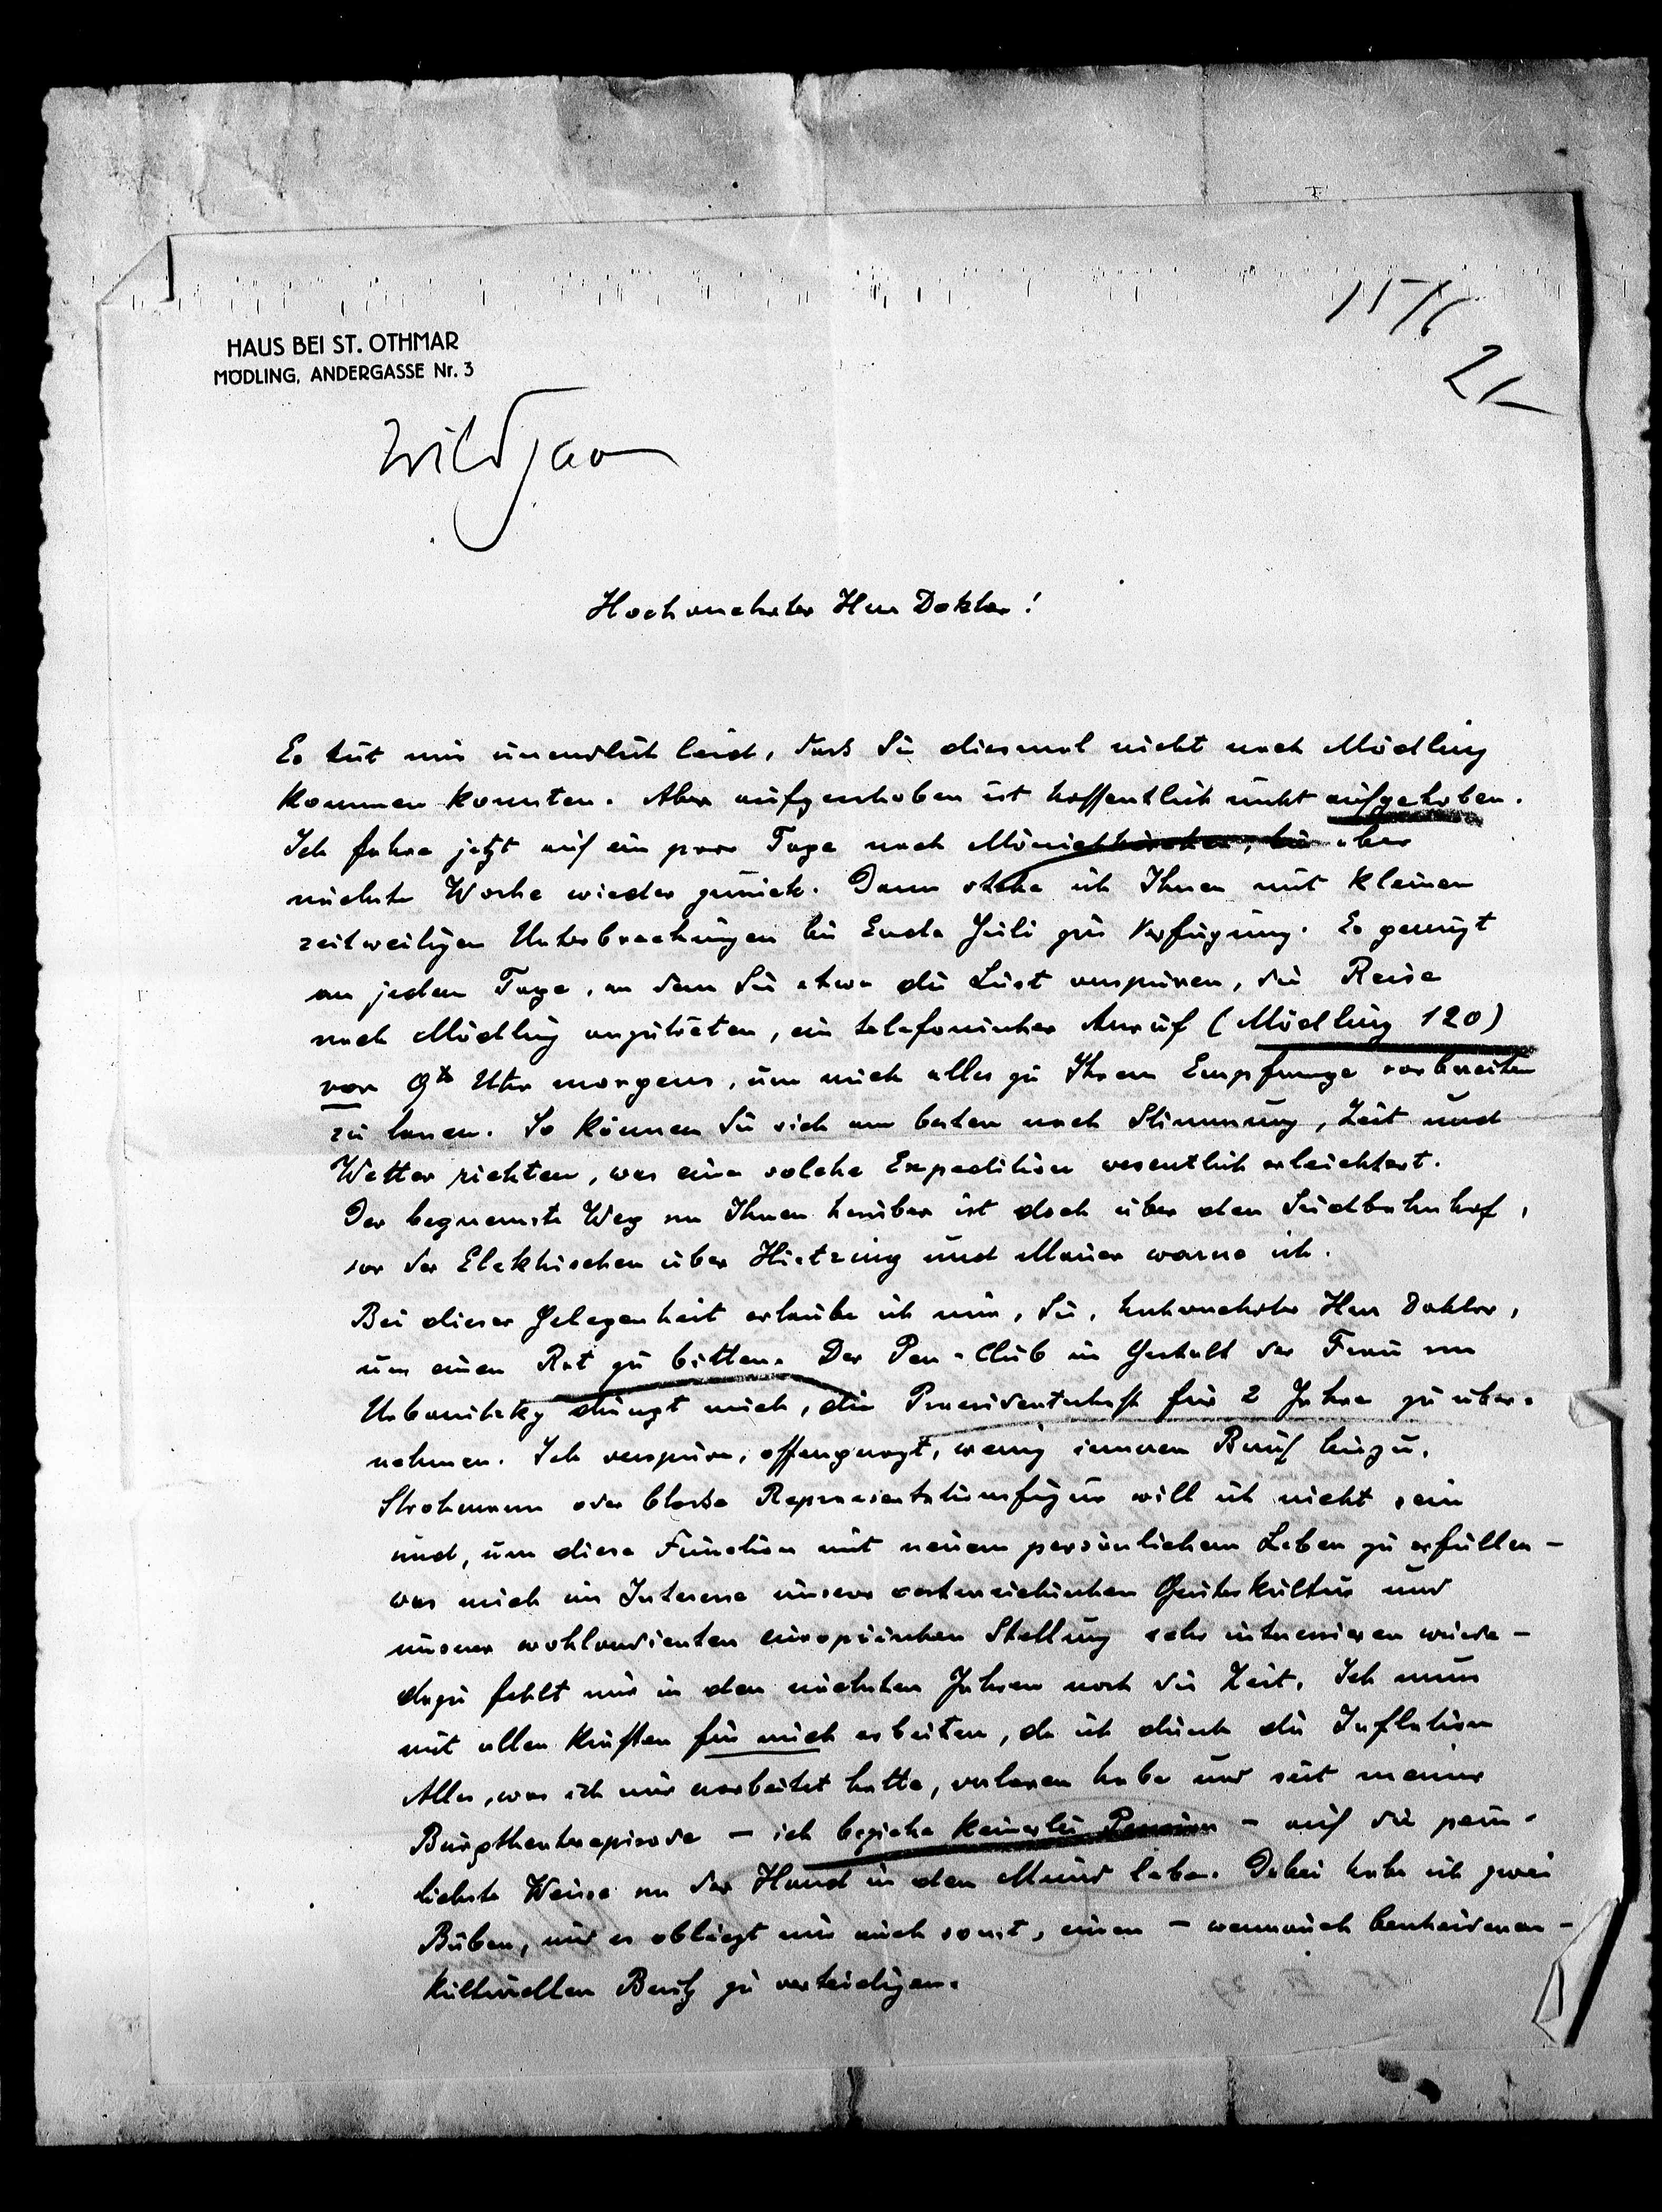 15/6
HAUS BEI ST. OTHMAR
MÖDLING, ANDERGASSE Nr. 3
Wildgans
Hochverehrter Herr Doktor!
Es tut mir unendlich leid, dass Sie diesmal nicht nach Mödling
kommen konnten. Aber aufgeschoben ist hoffentlich nicht aufgehoben.
Ich fahre jetzt auf ein paar Tage nach Mönichkirchen, bin aber
nächste Woche wieder zurück. Dann stehe ich Ihnen mit kleinen
zeitweiligen Unterbrechungen bis Ende Juli zur Verfügung. Es genügt
an jedem Tage, an dem Sie etwa die Lust verspüren, die Reise
nach Mödling anzutreten, ein telefonischer Anruf (Mödling 120)
vor 9h Uhr morgens, um mich alles zu Ihrem Empfange vorbereiten
zu lassen. So können Sie sich am besten nach Stimmung, Zeit und
Wetter richten, was eine solche Expedition wesentlich erleichtert.
Der bequemste Weg von Ihnen herüber ist doch über den Südbahnhof,
vor der Elektrischen über Hietzing und Mauer warne ich.
Bei dieser Gelegenheit erlaube ich mir, Sie, hochverehrter Herr Doktor,
um einen Rat zu bitten. Der Pen-Club in Gestalt der Frau von
Urbanitzky drängt mich, die Praesidentschaft für 2 Jahre zu über-
nehmen. Ich verspüre, offengesagt, wenig inneren Beruf hiezu.
Strohmann oder blosse Repraesentationsfigur will ich nicht sein
und, um diese Function mit neuem persönlichem Leben zu erfüllen –
was mich im Interesse unserer oesterreichischen Geisteskultur und
unserer wohlverdienten europäischen Stellung sehr interessieren würde –
dazu fehlt mir in den nächsten Jahren noch die Zeit. Ich muss
mit allen Kräften für mich arbeiten, da ich durch die Inflation
Alles, was ich mir erarbeitet hatte, verloren habe und seit meiner
Burgtheaterepisode – ich beziehe keinerlei Pension – auf die pein-
lichste Weise von der Hand in den Mund lebe. Dabei habe ich zwei
Buben, und es obliegt mir auch sonst, einen – wennauch bescheidenen –
kulturellen Besitz zu verteidigen.